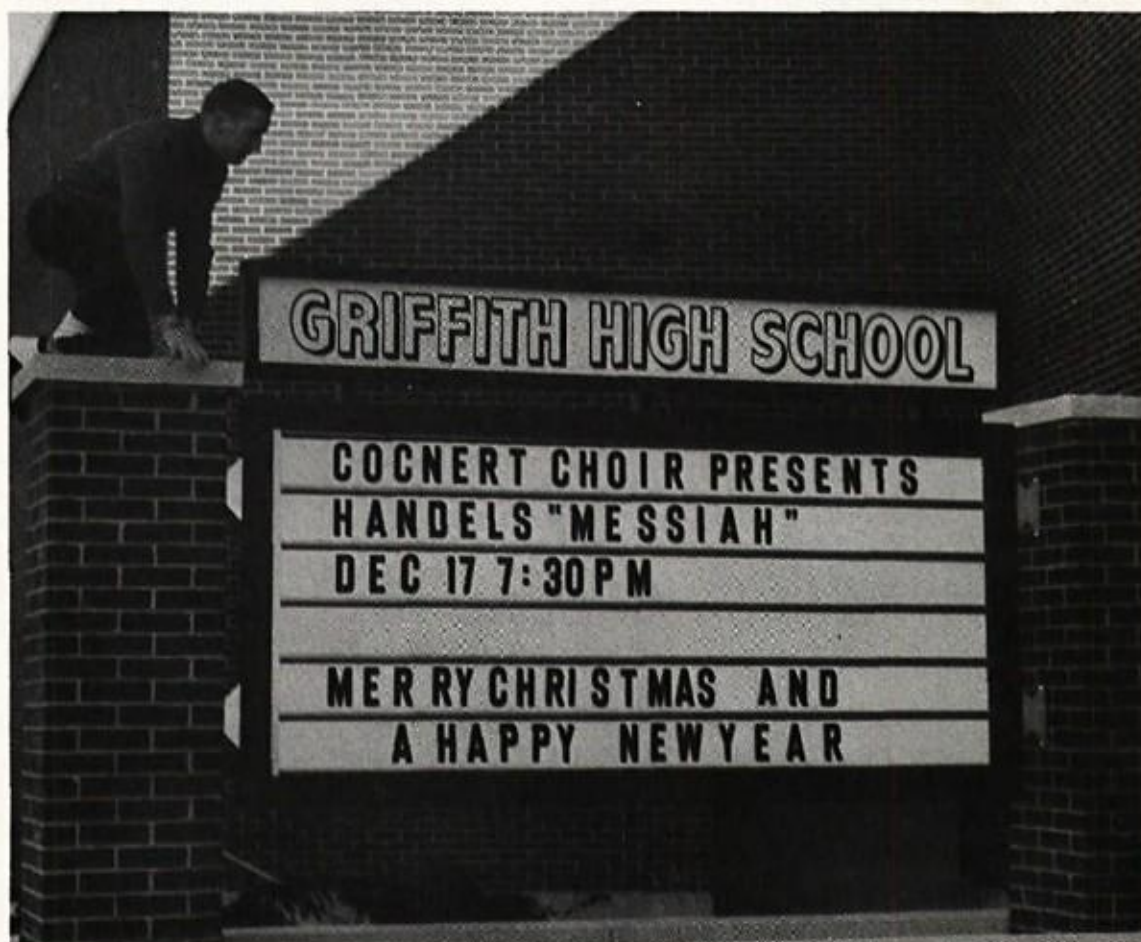 GRIFFITH HIGH SCHOOL
COCNERT CHOIR PRESENTS
HANDELS "MESSIAH"
DEC 17 7:30PM
MERRY CHRISTMAS AND
A HAPPY NEW YEAR